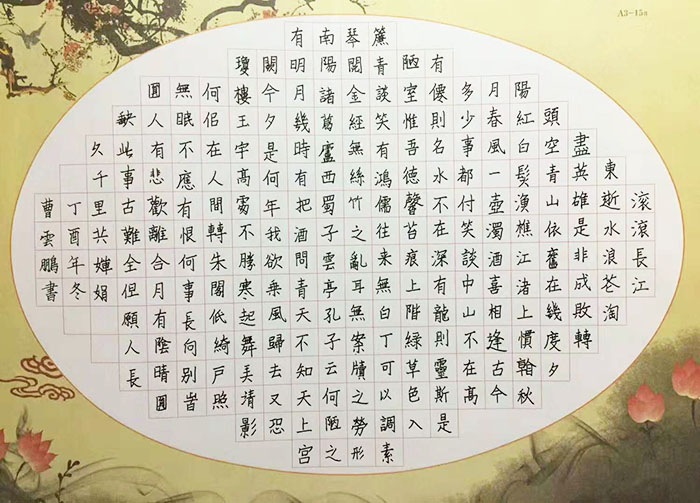 A3-15a
滾滾長江
東逝水浪苍淘
盡英雄是非成敗轉
頭空青山依舊在幾度夕
陽紅白髮漁樵江渚上慣翰秋
月春風一壺濁酒喜相逢古今
多少事都付笑談中山不在高
有僊則名水不在深有龍則靈斯是
陋室惟吾德馨苔痕上階緑草色入
簾青談笑有鴻儒往來無白丁可以調素
琴閱金經無絲竹之亂耳無案牘之勞形
南陽諸葛廬西蜀子雲亭孔子云何陋之
有明月幾時有把酒問青天不知天上宮
闕今夕是何年我欲乘風歸去又忍
瓊樓玉宇高處不勝寒起舞美清影
何佀在人間轉朱閣低綺戶照
無眠不應有恨何事長向别皆
圓人有悲歡離合月有陰晴圓
缺此事古難全但願人長
久千里共嬋娟
丁酉年冬
曹雲鵬書